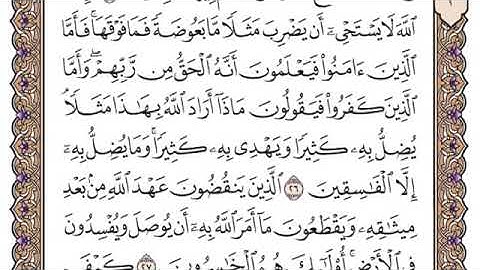 ٱللَّهَ لَا يَسْتَحْىِۦٓ أَن يَضْرِبَ مَثَلًا مَّا بَعُوضَةً فَمَا فَوْقَهَا ۚ فَأَمَّا
ٱلَّذِينَ ءَامَنُوا۟ فَيَعْلَمُونَ أَنَّهُ ٱلْحَقُّ مِن رَّبِّهِمْ ۖ وَأَمَّا
ٱلَّذِينَ كَفَرُوا۟ فَيَقُولُونَ مَاذَآ أَرَادَ ٱللَّهُ بِهَـٰذَا مَثَلًا ۘ
يُضِلُّ بِهِۦ كَثِيرًا وَيَهْدِى بِهِۦ كَثِيرًا ۚ وَمَا يُضِلُّ بِهِۦٓ
إِلَّا ٱلْفَـٰسِقِينَ ٢٦ ٱلَّذِينَ يَنقُضُونَ عَهْدَ ٱللَّهِ مِنۢ بَعْدِ
مِيثَـٰقِهِۦ وَيَقْطَعُونَ مَآ أَمَرَ ٱللَّهُ بِهِۦٓ أَن يُوصَلَ وَيُفْسِدُونَ
فِى ٱلْأَرْضِ ۚ أُو۟لَـٰٓئِكَ هُمُ ٱلْخَـٰسِرُونَ ٢٧ كَيْفَ